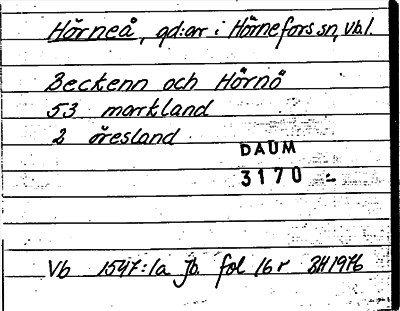 Hörneå, gd:ar i Hörnefors sn, Vb.l.
Beckenn och Hörnö
53 markland
2 öresland
DAUM
3170 -
Vb 1547:1a Jb. fol 16r BH1976